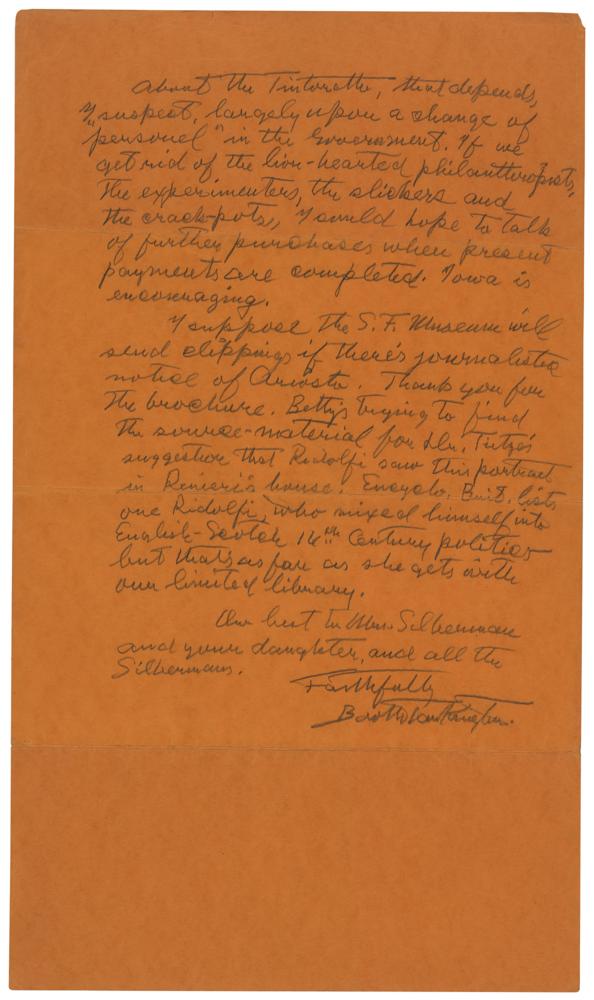 About the Tintoretto, that depends,
I suspect, largely upon a change of
"personel" in the Government. If we
get rid of the lion-hearted philanthropists,
the experimenters, the slickers and
the crackpots, I would hope to talk
of further purchases when present
payments are completed. Iowa is
encouraging.
I suppose the S. F. Museum will
send clippings if there's journalistic
notice of Ariosto. Thank you for
the brochure. Betty's trying to find
the source-material for Dr. Tietze's
suggestion that Ridolfi saw this portrait
in Renieri's house. Encyclo. Brit. lists
one Ridolfi, who mixed himself into
English-Scotch 16th Century politics
but that's as far as she gets with
our limited library.
Our best to Mrs. Silberman
and your daughter, and all the
Silbermans.
Faithfully
Booth Tarkington.